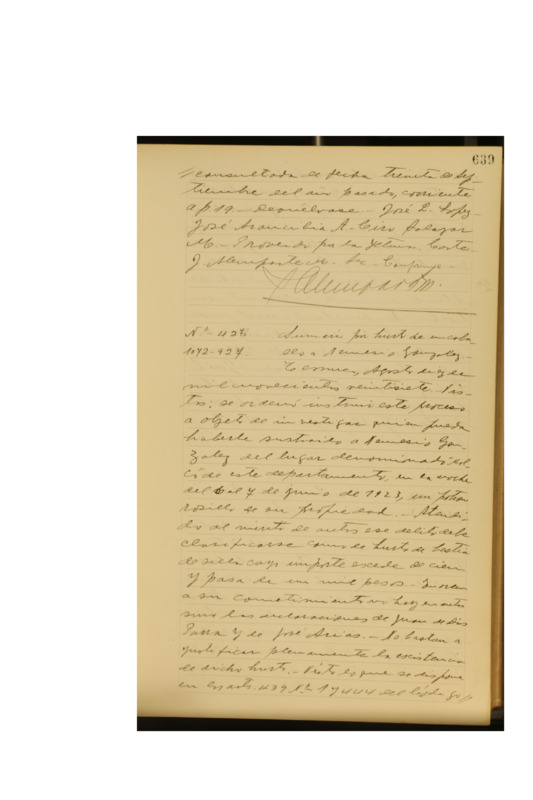 639
consultada de fecha treinta de Sep-
tiembre del año pasado, corriente
a f 19. Devuélvase. José L. Lopez
José Arancibia A. Ciro Salazar
M. Proveido por la Iltma. Corte
J. Alemparte M. Sec.
Alemparte M.
Sumario por hurto de un caba-
llo a Nemesio Gonzalez
1072-927. Temuco, Agosto de
mil novecientos veintisiete. Vis-
tos: se ordenó instruir este proceso
a objeto de investigar quien pueda
haberle sustraido a Nemesio Gon-
zalez del lugar denominado
de este departamento, en la noche
del 6 al 7 de Junio de 1923, un potron
rosillo de su propiedad. Atendi-
do al mérito de autos ese delito debe
clasificarse como de hurto de bestia
de silla cuyo importe excede de cien
y pasa de un mil pesos. En orden
a su cometimiento no hay en autos
sino las declaraciones de Juan de Dios
Parra y de José Arias. No bastan a
justificar plenamente la existencia
de dicho hurto. Visto lo que se dispone
en los arts. 439 Nº 1 y 444 del Código